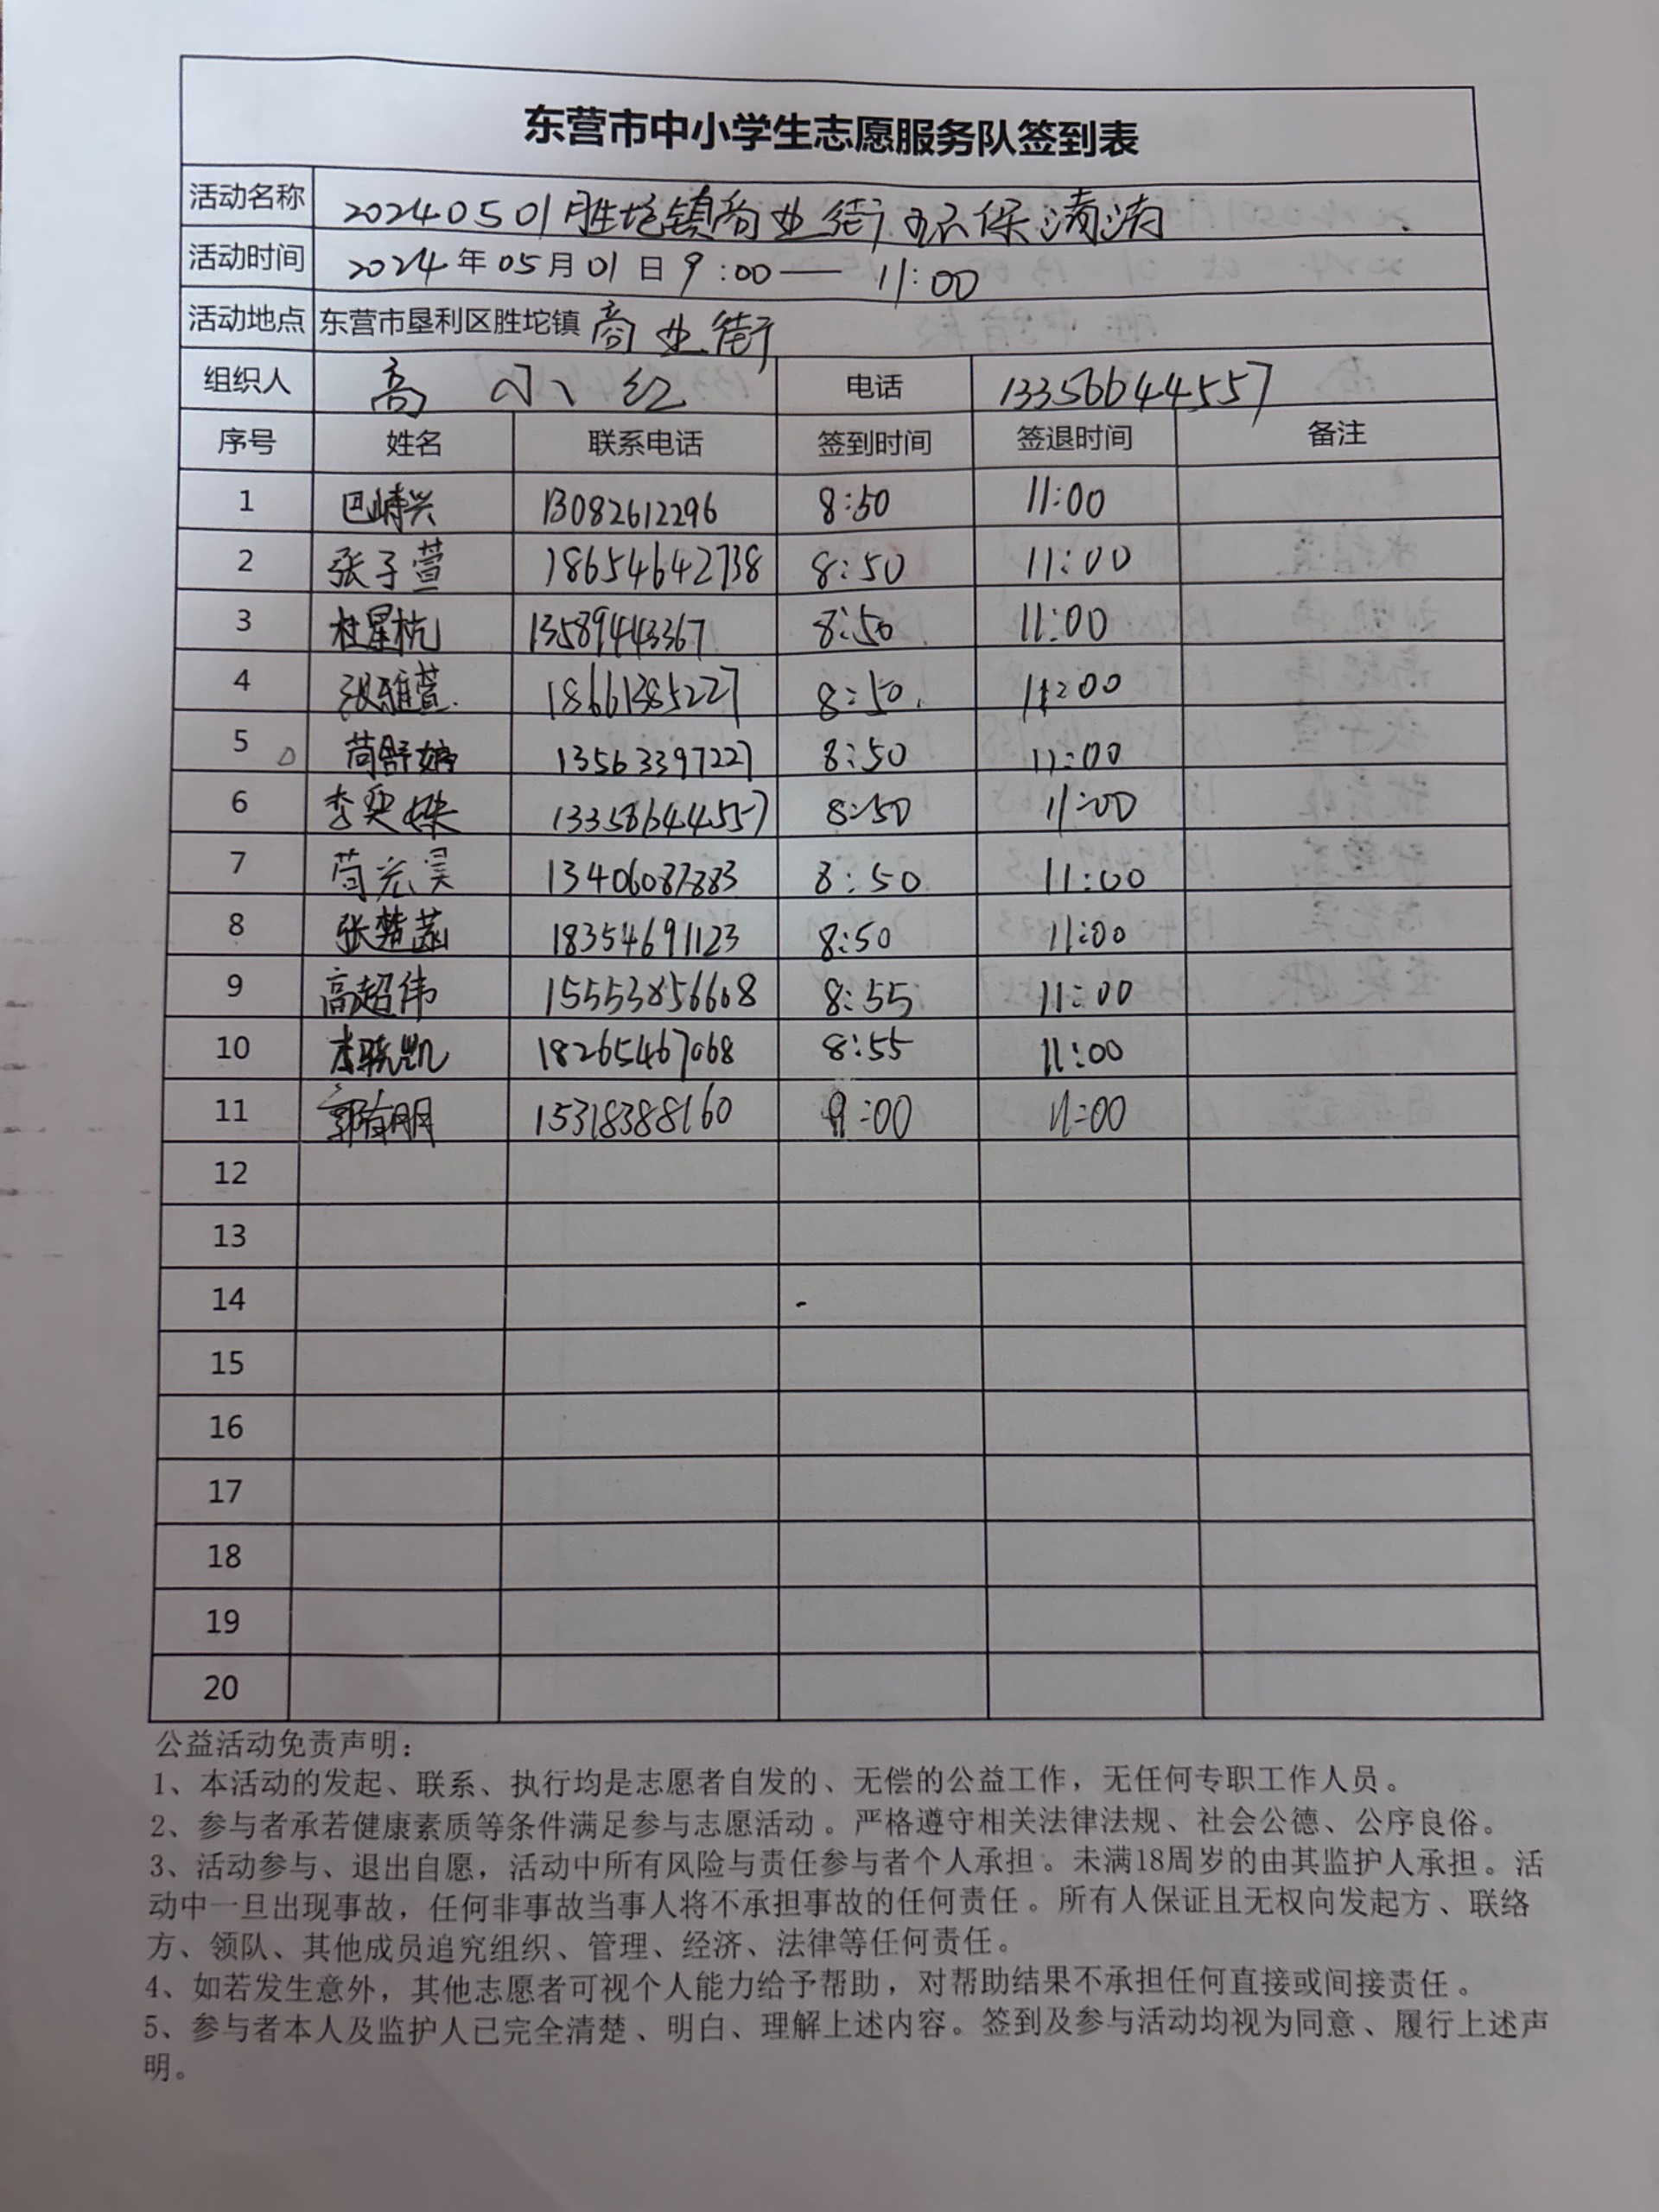 东营市中小学生志愿服务队签到表
活动名称 20240501胜坨镇商业街环保清洁
活动时间 2024年05月01日9:00—11:00
活动地点 东营市垦利区胜坨镇商业街
组织人 高小红 电话 13356644557
序号 姓名 联系电话 签到时间 签退时间 备注
1 13082612296 8:50 11:00
2 张子萱 18654642738 8:50 11:00
3 杜星杭 13589443367 8:50 11:00
4 张雅萱 18661385227 8:50 11:00
5 13563397227 8:50 11:00
6 8:50 11:00
7 8:50 11:00
8 张楚菡 18354691123 8:50 11:00
9 高超伟 8:55 11:00
10 李晓凯 18265467068 8:55 11:00
11 郭有朋 15318388160 9:00 11:00
12
13
14
15
16
17
18
19
20
公益活动免责声明：
1、本活动的发起、联系、执行均是志愿者自发的、无偿的公益工作，无任何专职工作人员。
2、参与者承若健康素质等条件满足参与志愿活动。严格遵守相关法律法规、社会公德、公序良俗。
3、活动参与、退出自愿，活动中所有风险与责任参与者个人承担。未满18周岁的由其监护人承担。活
动中一旦出现事故，任何非事故当事人将不承担事故的任何责任。所有人保证且无权向发起方、联络
方、领队、其他成员追究组织、管理、经济、法律等任何责任。
4、如若发生意外，其他志愿者可视个人能力给予帮助，对帮助结果不承担任何直接或间接责任。
5、参与者本人及监护人已完全清楚、明白、理解上述内容。签到及参与活动均视为同意、履行上述声
明。